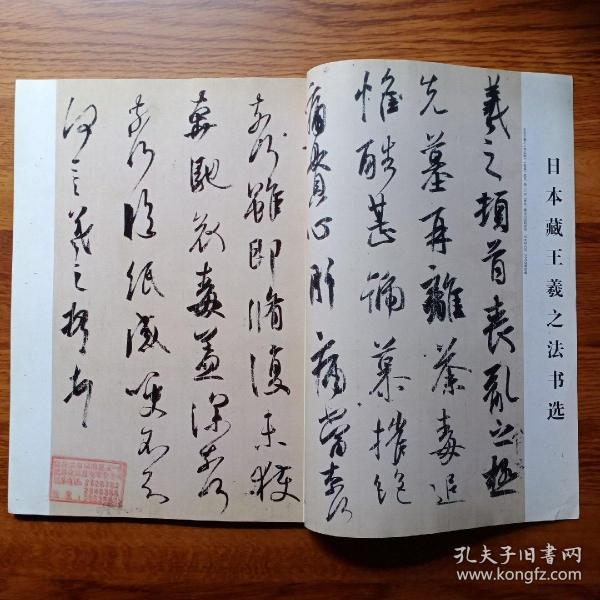 日本藏王羲之法书选
羲之頓首喪亂之極
先墓再離荼毒追
惟酷甚號慕摧絕
痛貫心肝痛當奈何
奈何雖即脩復未獲
奔馳哀毒益深奈何
奈何臨紙感哽不知
何言羲之頓首頓首
孔夫子旧书网
www.kongfz.com